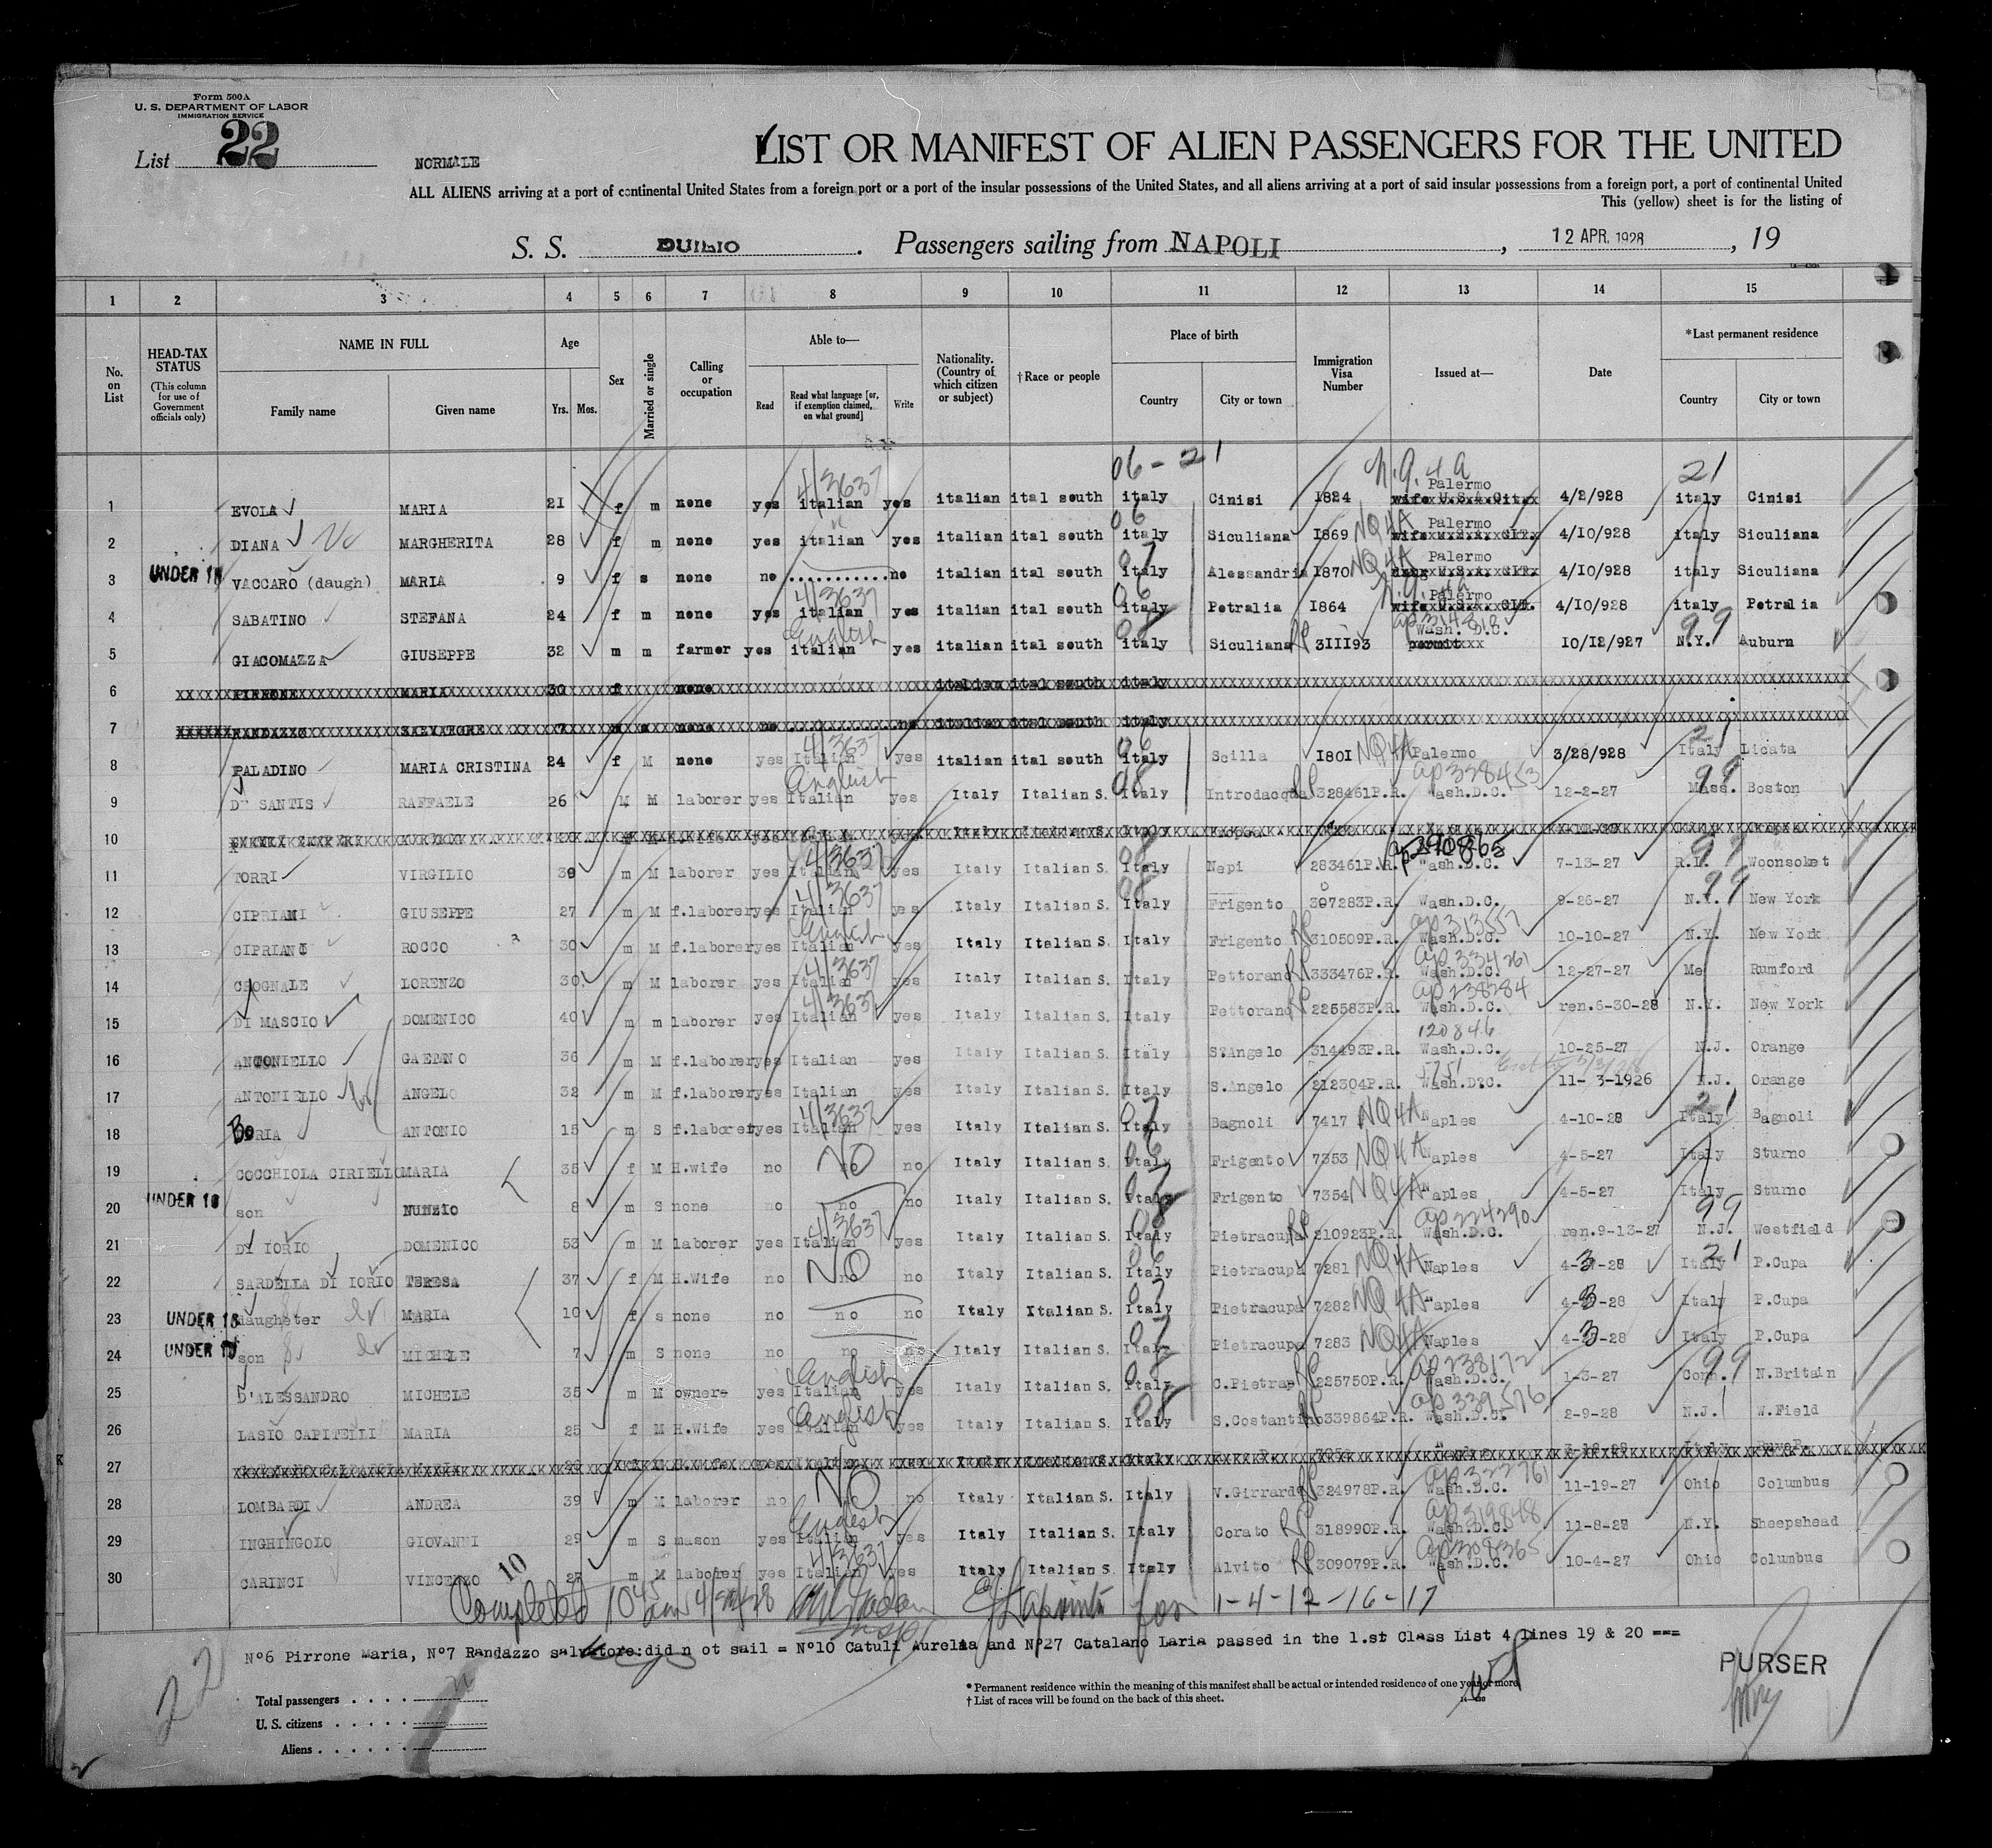 Form 500A
U. S. DEPARTMENT OF LABOR
IMMIGRATION SERVICE
List 22
NORMALE
LIST OR MANIFEST OF ALIEN PASSENGERS FOR THE UNITED
ALL ALIENS arriving at a port of continental United States from a foreign port or a port of the insular possessions of the United States, and all aliens arriving at a port of said insular possessions from a foreign port, a port of continental United
This (yellow) sheet is for the listing of
S. S. DUILIO. Passengers sailing from NAPOLI, 12 APR. 1928, 19
1 2 3 4 5 6 7 8 9 10 11 12 13 14 15
No. on List
HEAD-TAX STATUS (This column for use of Government officials only)
NAME IN FULL
Family name Given name
Age
Yrs. Mos.
Sex
Married or single
Calling or occupation
Able to—
Read Read what language [or, if exemption claimed, on what ground] Write
Nationality. (Country of which citizen or subject)
†Race or people
Place of birth
Country City or town
Immigration Visa Number
Issued at—
Date
*Last permanent residence
Country City or town
06 - 21 21
1 EVOLA MARIA 21 f m none yes italian yes italian ital south italy Cinisi 1824 Palermo 4/2/928 italy Cinisi
2 DIANA MARGHERITA 28 f m none yes italian yes italian ital south italy Siculiana 1869 NQ4A Palermo 4/10/928 italy Siculiana
3 UNDER 18 VACCARO (daugh) MARIA 9 f s none no no italian ital south italy Alessandria 1870 NQ4A Palermo 4/10/928 italy Siculiana
4 SABATINO STEFANA 24 f m none yes italian yes italian ital south italy Petralia 1864 Palermo 4/10/928 italy Petralia
5 GIACOMAZZA GIUSEPPE 32 m m farmer yes italian English yes italian ital south italy Siculiana RP 311193 Wash. D.C. 10/12/927 N.Y. Auburn
6 PIRRONE MARIA 30 f none italian ital south italy
7 RANDAZZO SALVATORE 7 none no no italian ital south italy
8 PALADINO MARIA CRISTINA 24 f M none yes Italian yes italian ital south italy Scilla 1801 NQ4A Palermo 3/28/928 Italy Licata
9 DE SANTIS RAFFAELE 26 M M laborer yes Italian English yes Italy Italian S. Italy Introdacqua RP 328461P.R. Wash.D.C. 12-2-27 Mass. Boston
10
11 TORRI VIRGILIO 39 m M laborer yes Italian yes Italy Italian S. Italy Nepi 283461P.R. Wash.D.C. 7-13-27 R.I. Woonsoket
12 CIPRIANI GIUSEPPE 27 m M f.laborer yes Italian yes Italy Italian S. Italy Frigento 307283P.R. Wash.D.C. 9-26-27 N.Y. New York
13 CIPRIANO ROCCO 30 m M f.laborer yes Italian yes Italy Italian S. Italy Frigento RP 310509P.R. Wash.D.C. 10-10-27 N.Y. New York
14 CROGNALE LORENZO 30 m M laborer yes Italian yes Italy Italian S. Italy Pettorano RP 333476P.R. Wash.D.C. 12-27-27 Me Rumford
15 DI MASCIO DOMENICO 40 m m laborer yes Italian yes Italy Italian S. Italy Pettorano RP 225583P.R. Wash.D.C. ren.6-30-28 N.Y. New York
16 ANTONIELLO GAETANO 36 m M f.laborer yes Italian yes Italy Italian S. Italy S.Angelo 314493P.R. Wash.D.C. 10-25-27 N.J. Orange
17 ANTONIELLO ANGELO 32 m M f.laborer yes Italian yes Italy Italian S. Italy S.Angelo 212304P.R. Wash.D.C. 11- 3-1926 N.J. Orange
18 ANTONIO 15 m S f.laborer yes Italian yes Italy Italian S. Italy Bagnoli 7417 NQ4A Naples 4-10-28 Italy Bagnoli
19 COCCHIOLA CIRIELLO MARIA 35 f M H.wife no NO no Italy Italian S. Italy Frigento 7353 NQ4A Naples 4-5-27 Italy Sturno
20 UNDER 18 son NUNZIO 8 m S none no no no Italy Italian S. Italy Frigento 7354 NQ4A Naples 4-5-27 Italy Sturno
21 DI IORIO DOMENICO 53 m M laborer yes Italian yes Italy Italian S. Italy Pietracupa RP 210923P.R. Wash.D.C. ren.9-13-27 N.J. Westfield
22 SARDELLA DI IORIO TERESA 37 f M H.Wife no NO no Italy Italian S. Italy Pietracupa 7281 NQ4A Naples 4-3-28 Italy P.Cupa
23 UNDER 18 daugheter MARIA 10 f s none no no no Italy Italian S. Italy Pietracupa 7282 NQ4A Naples 4-3-28 Italy P.Cupa
24 UNDER 18 son MICHELE 7 m S none no no no Italy Italian S. Italy Pietracupa 7283 NQ4A Naples 4-3-28 Italy P.Cupa
25 D'ALESSANDRO MICHELE 35 m M owners yes Italian English yes Italy Italian S. Italy C.Pietrap RP 225750P.R. Wash.D.C. 1-3-27 Conn. N.Britain
26 LASIO CAPITELLI MARIA 25 f M H.Wife yes Italian English yes Italy Italian S. Italy S.Costantino 339864P.R. Wash.D.C. 2-9-28 N.J. W.Field
27
28 LOMBARDI ANDREA 39 m M laborer no NO no Italy Italian S. Italy V.Girrardo RP 324978P.R. Wash.D.C. 11-19-27 Ohio Columbus
29 INGHINGOLO GIOVANNI 29 m S mason yes Italian yes Italy Italian S. Italy Corato RP 318990P.R. Wash.D.C. 11-8-28 N.Y. Sheepshead
30 CARINCI VINCENZO 27 m M laborer yes Italian yes Italy Italian S. Italy Alvito RP 309079P.R. Wash.D.C. 10-4-27 Ohio Columbus
10 Completed for 1-4-12-16-17
Nº6 Pirrone Maria, Nº7 Randazzo salvatore:did n ot sail = Nº10 Catuli Aurelia and Nº27 Catalano Laria passed in the 1.st Class List 4 lines 19 & 20 ===
22
PURSER
Total passengers
U. S. citizens
Aliens
* Permanent residence within the meaning of this manifest shall be actual or intended residence of one year or more.
† List of races will be found on the back of this sheet.